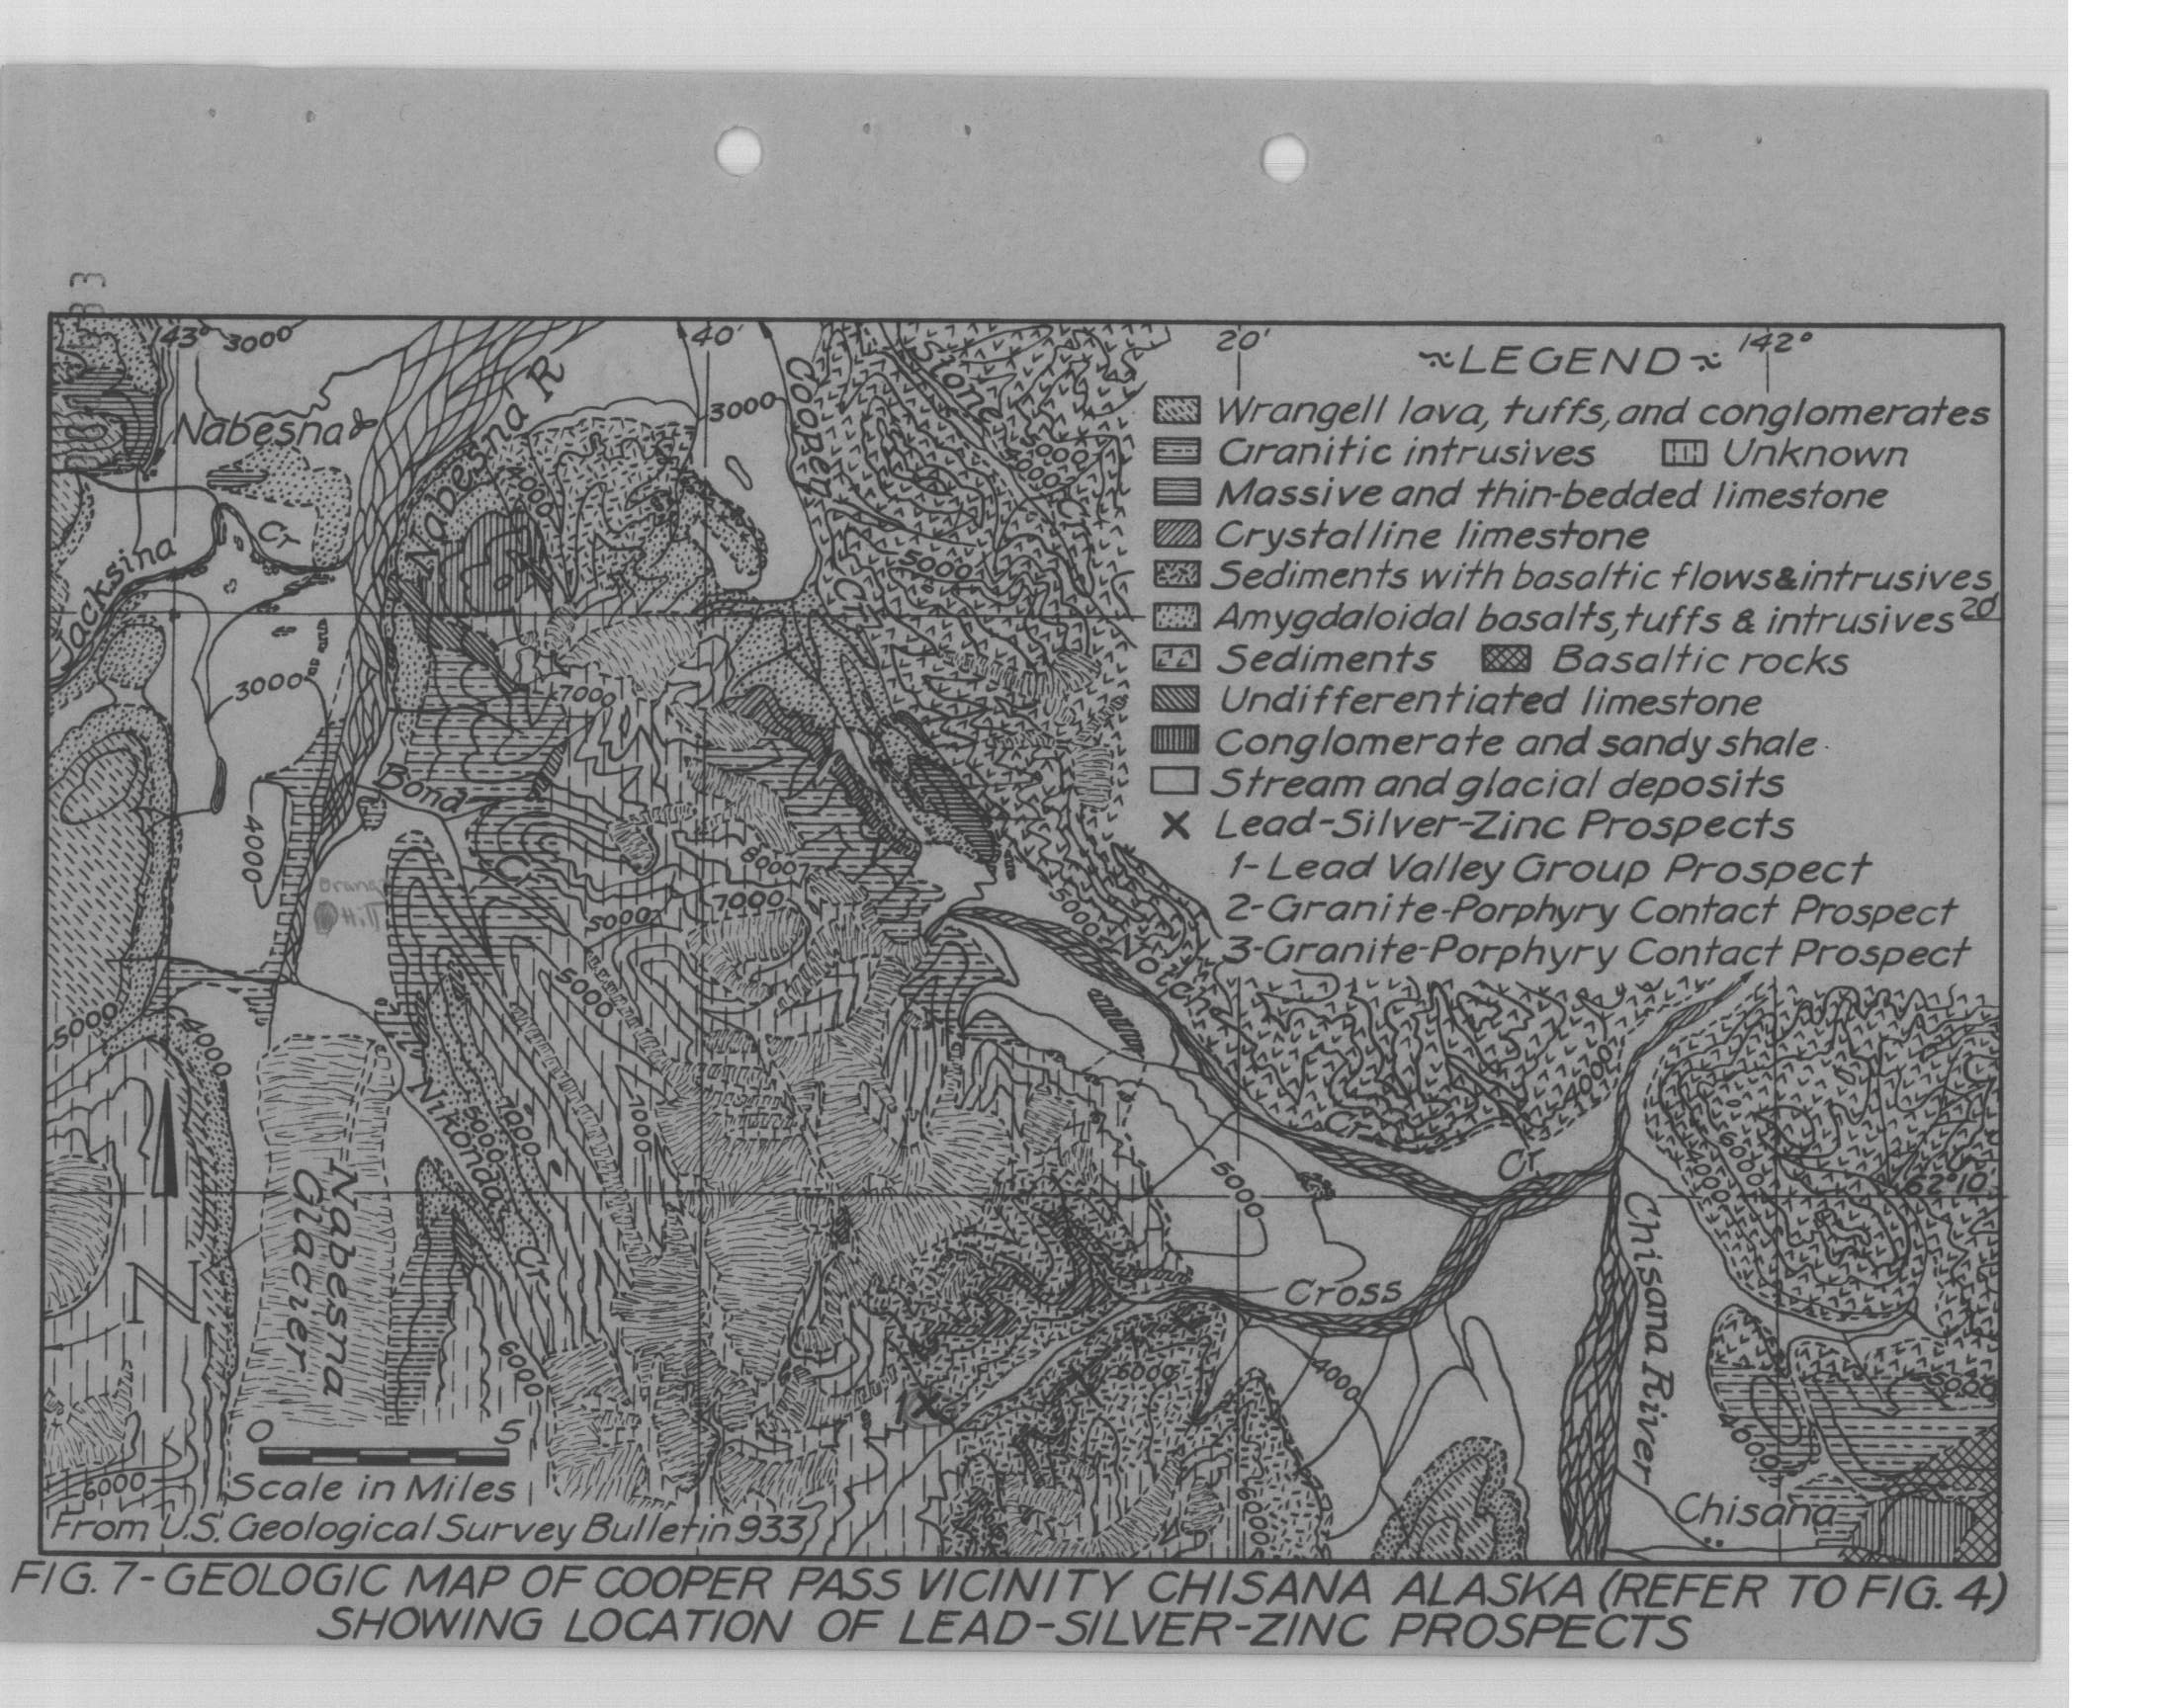 33
143°
3000
40'
20'
142°
~LEGEND~
Wrangell lava, tuffs, and conglomerates
Granitic intrusives
Unknown
Massive and thin-bedded limestone
Crystalline limestone
Sediments with basaltic flows & intrusives
Amygdaloidal basalts, tuffs & intrusives
20'
Sediments
Basaltic rocks
Undifferentiated limestone
Conglomerate and sandy shale
Stream and glacial deposits
X Lead-Silver-Zinc Prospects
1-Lead Valley Group Prospect
2-Granite-Porphyry Contact Prospect
3-Granite-Porphyry Contact Prospect
Nabesna
Nabesna R
3000
Cooper
Cr
Stone
Cr
5000
4000
4000
5000
Jacksina
Cr
3000
7000
Bond
Cr
4000
Orange
Hill
8000
7000
5000
5000
5000
Notch
Cr
4000
Cr
5000
4000
Nikonda
Cr
5000
7000
7000
6000
4000
62°10'
5000
Nabesna
Glacier
N
Cross
Chisana River
6000
4000
1X
6000
5000
4000
6000
0 5
Scale in Miles
6000
Chisana
From U.S. Geological Survey Bulletin 933
FIG. 7-GEOLOGIC MAP OF COOPER PASS VICINITY CHISANA ALASKA (REFER TO FIG. 4)
SHOWING LOCATION OF LEAD-SILVER-ZINC PROSPECTS